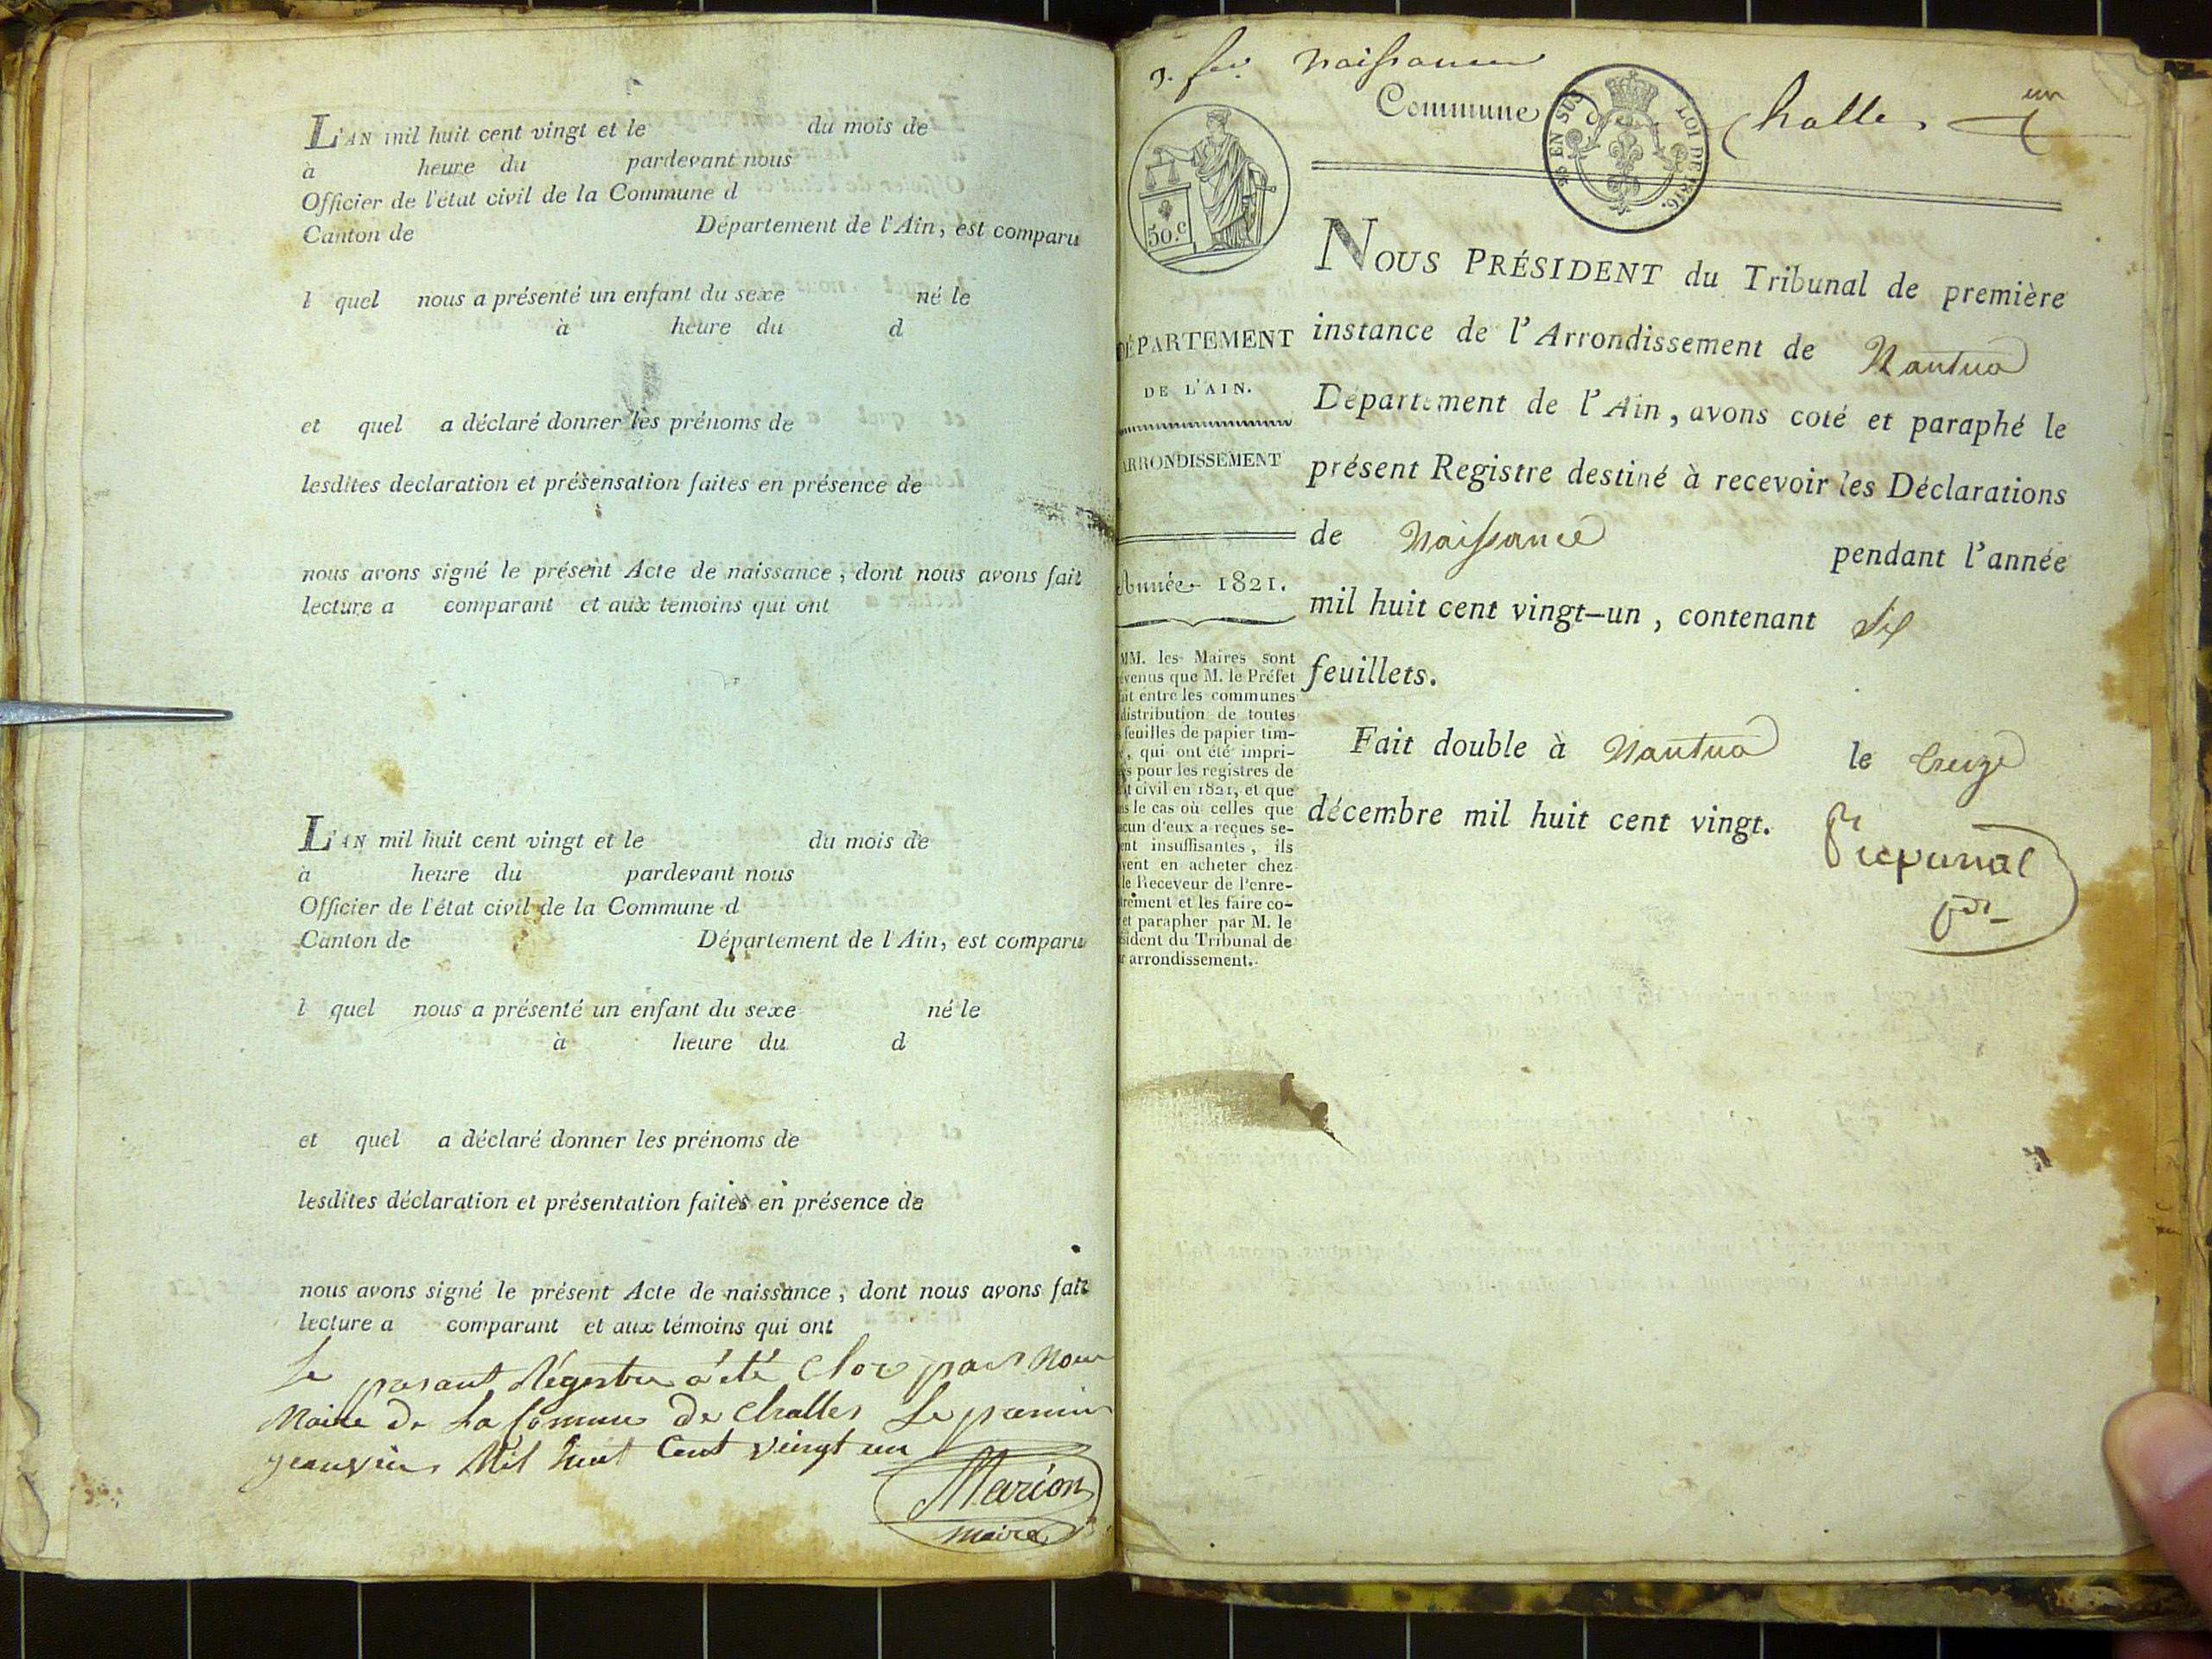 L'AN mil huit cent vingt et le du mois de
à heure du pardevant nous
Officier de l'état civil de la Commune d
Canton de Département de l'Ain, est comparu
l quel nous a présenté un enfant du sexe né le
à heure du d
et quel a déclaré donner les prénoms de
lesdites declaration et présensation faites en présence de
nous avons signé le présent Acte de naissance, dont nous avons fait
lecture a comparant et aux temoins qui ont
L'AN mil huit cent vingt et le du mois de
à heure du pardevant nous
Officier de l'état civil de la Commune d
Canton de Département de l'Ain, est comparu
l quel nous a présenté un enfant du sexe né le
à heure du d
et quel a déclaré donner les prénoms de
lesdites déclaration et présentation faites en présence de
nous avons signé le présent Acte de naissance, dont nous avons fait
lecture a comparant et aux témoins qui ont
Le parsant Régestre a été Clos par nous
Maire de La Comune de Challes Le pramier
jeanvier Mil huit Cent vingt un
Marion
maire
Naissance
Commune de Challes un
25 EN SUS LOI DE 1816.
50.c
NOUS PRÉSIDENT du Tribunal de première
instance de l'Arrondissement de Nantua
Département de l'Ain, avons coté et paraphé le
présent Registre destiné à recevoir les Déclarations
de Naissance pendant l'année
mil huit cent vingt-un, contenant Six
feuillets.
Fait double à Nantua le treize
décembre mil huit cent vingt.
DÉPARTEMENT
DE L'AIN.
ARRONDISSEMENT
Année 1821.
MM. les Maires sont
évenus que M. le Préfet
ait entre les communes
distribution de toutes
feuilles de papier tim-
, qui ont été impri-
s pour les registres de
t civil en 1821, et que
ns le cas où celles que
acun d'eux a reçues se-
ent insuffisantes, ils
vent en acheter chez
le Receveur de l'enre-
rement et les faire co-
et parapher par M. le
sident du Tribunal de
r arrondissement.